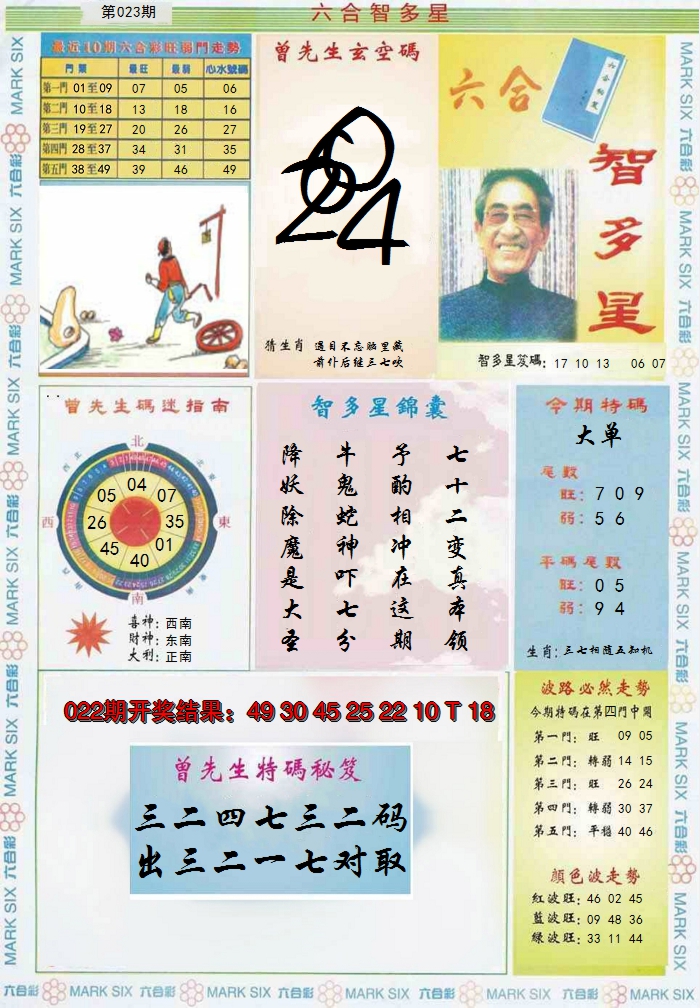 第023期
六合智多星
最近10期六合彩旺弱門走勢
門類 最旺 最弱 心水號碼
第一門 01至09 07 05 06
第二門 10至18 13 18 16
第三門 19至27 20 26 27
第四門 28至37 34 31 35
第五門 38至49 39 46 49
曾先生玄空碼
024
猜生肖 過目不忘腦里藏
前仆后继三七吹
六合
六合秘笈
智多星
智多星笈碼: 17 10 13 06 07
曾先生碼迷指南
北
西
東
南
西北
東北
04
05
07
26
35
45
01
40
喜神: 西南
財神: 东南
大利: 正南
智多星錦囊
七十二变真本领
予酌相冲在这期
牛鬼蛇神吓七分
降妖除魔是大圣
今期特碼
大单
尾數
旺: 7 0 9
弱: 5 6
平碼尾數
旺: 0 5
弱: 9 4
生肖: 三七相随五知机
022期开奖结果: 49 30 45 25 22 10 T 18
曾先生特碼秘笈
三二四七三二码
出三二一七对取
波路必然走勢
今期特碼在第四門中開
第一門: 旺 09 05
第二門: 轉弱 14 15
第三門: 旺 26 24
第四門: 轉弱 30 37
第五門: 平穩 40 46
顏色波走勢
紅波旺: 46 02 45
藍波旺: 09 48 36
綠波旺: 33 11 44
MARK SIX 六合彩